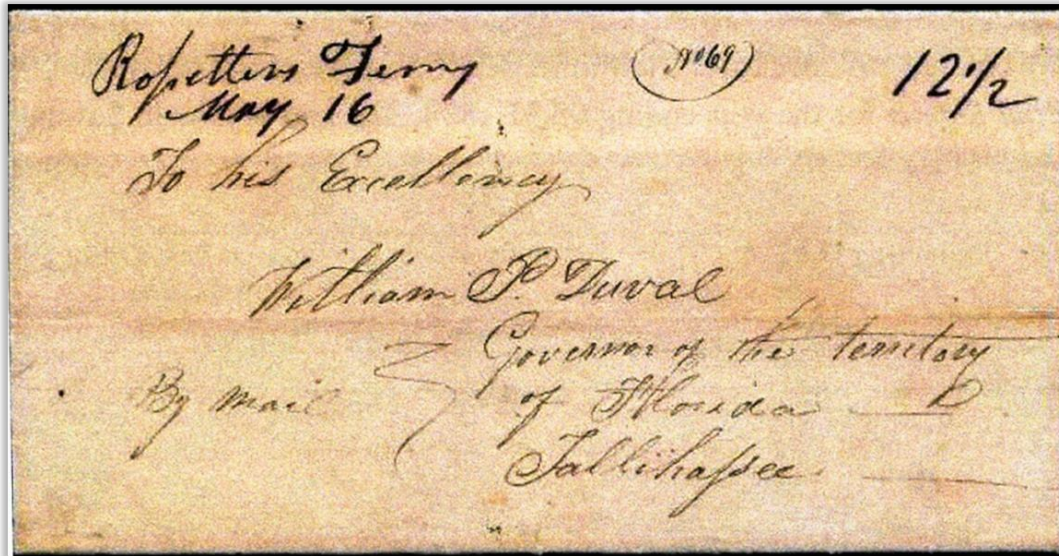 Ropetters Ferry
May 16
No 69
12 1/2
To his Excellency
William P. Duval
Governor of the territory
of Florida
By mail
Tallihassee